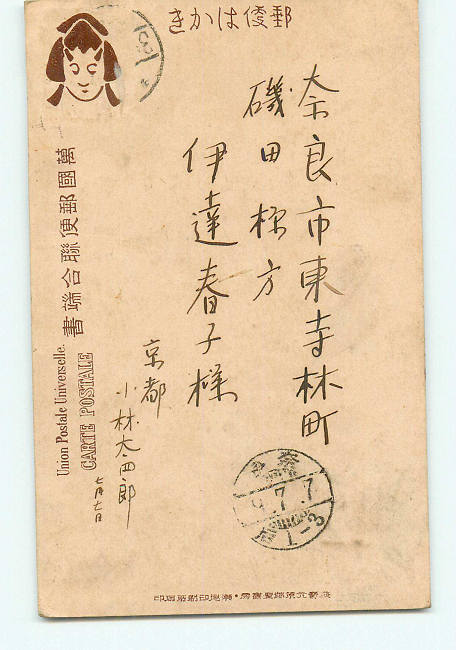 郵便はかき
奈良市東寺林町
磯田様方
伊達春子様
京都
小林太四郎
七月七日
萬國郵便聯合端書
Union Postale Universelle.
CARTE POSTALE
9.7.7